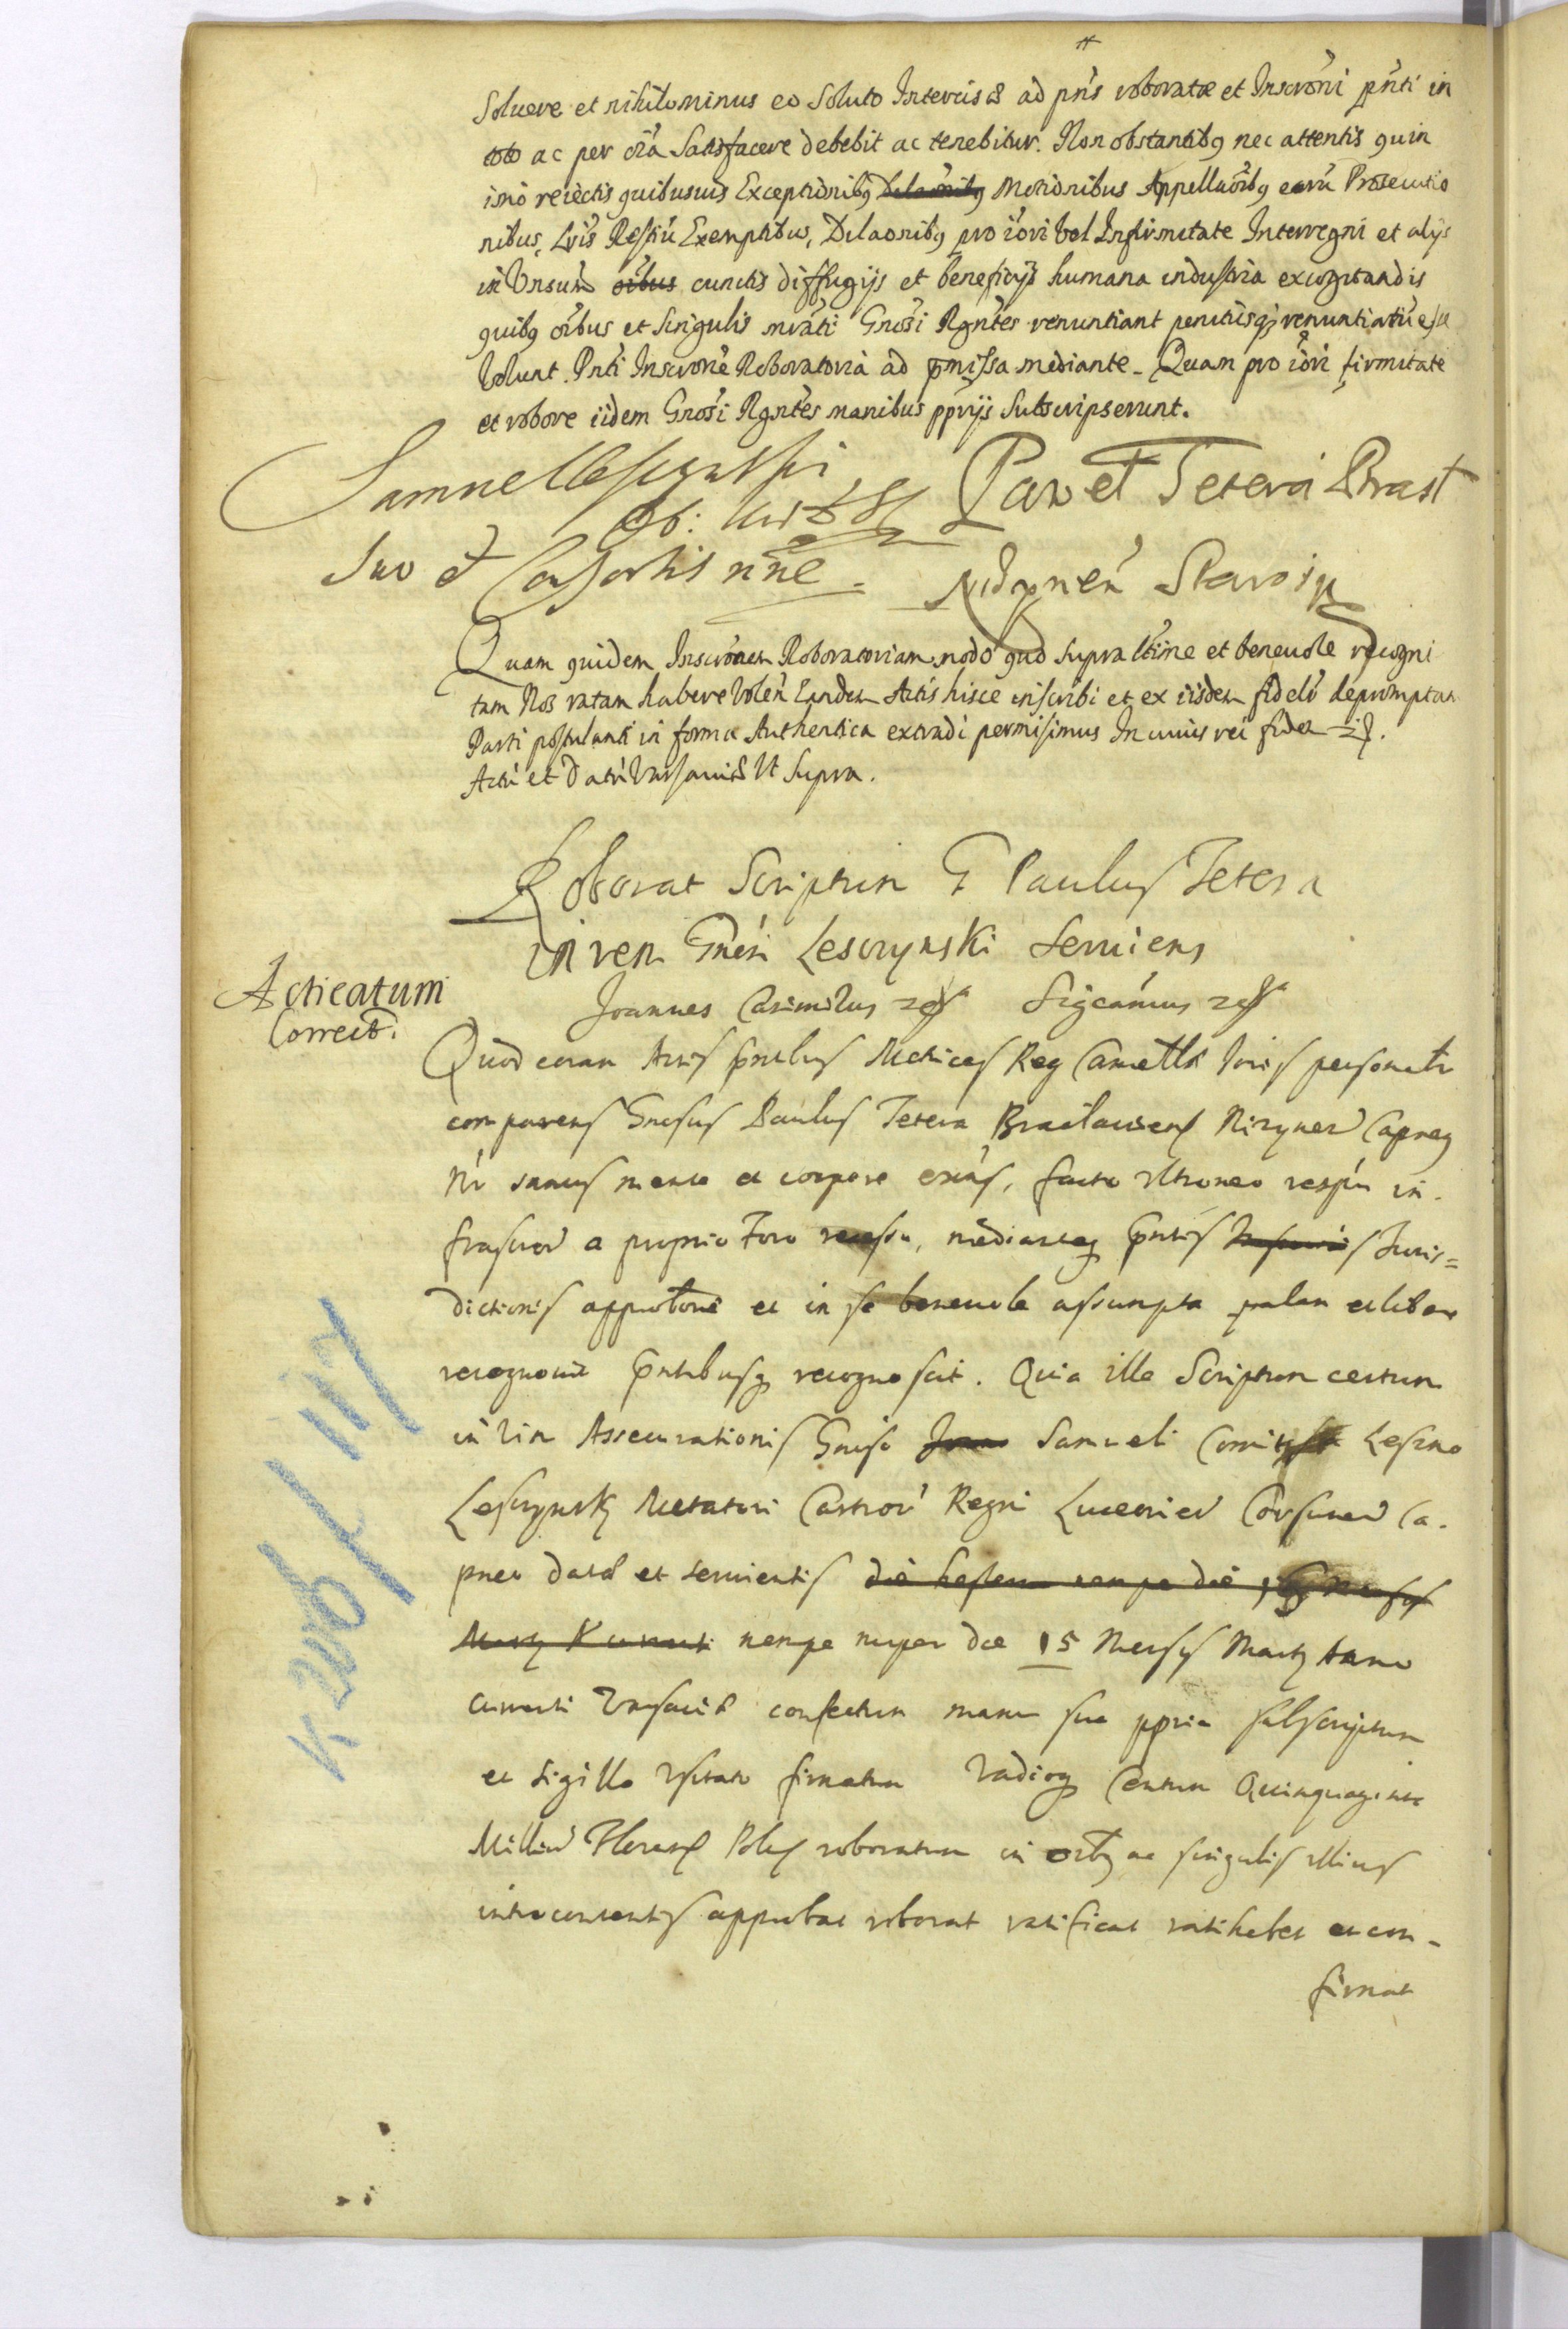 Soluere et nihilominus eo Soluto Intercisæ ad pn̄s roboratæ et Inscrōni pn̄ti in
toto ac per oīa Satisfacere debebit ac tenebitur. Non obstantibꝫ nec attentis quin
imò reiectis quibusuis Exceptionibꝫ Dilaōnibꝫ Motionibus Appellaōibꝫ earū Prosecutio
nibus, Lris Restiū Exemptibus, Dilaonibꝫ pro iōri vel Infirmitate Interregni et alijs
in Vnsum oībus cunctis diffugijs et beneficijs humana industria excogitandis
quibꝫ oībus et Singulis mrāti Gnōsi Rgn̄tes renuntiant penitusqꝫ renuntiatū esse
Volunt. Pnti Inscrōne Roboratoria ad pmissa mediante. Quam pro iōri firmitate
et robore iidem Gnōsi Rgn̄tes manibus pprijs Subscripserunt.
Samuel Lesczynski
Suo et Consortis nn̄e
Paweł Tetera
Quam quidem Inscrōnem Roboratoriam modo quo supra ltīme et beneuole recogni
tam Nos ratam habere Volen̄ Eandem Actis hisce inscribi et ex iisdem fideli depromptam
Parti postulanti in forma Authentica extradi permisimus In cuius rei fidem
Actū et Datū Varsauiæ Vt Supra.
Roborat Scriptum G Paulus Tetera
in rem Gnēsi Lesczynski Seruiens
Acticatum
Correct.
Joannes Casimirus Sigcāmus
Quod coram Actis pn̄tibus Metrices Reg Cancell Joris personaltr
comparens Gnosus Paulus Tetera Braclauien Nizynen Capneꝫ
Nr sanus mente et corpore exn̄s, facto vltroneo respū in-
frascrod a proprio Foro recessu, mediante pn̄tis Juris=
dictionis approbōne et in se beneuole assumpta palam et libere
recognouit pn̄tibusqꝫ recognoscit. Quia ille Scriptum certum
in vim Assecurationis Gnoso Samueli Comiti de Leszno
Lesczynskj Metatori Castrōr Regni Luceorien Corsunen Ca-
pneo datū et seruientis die hesterna nempe die
nempe nuper die 15 Mensis Martij Anno
currenti Varsauiæ confectum manu sua ppria subscriptum
et sigillo vsitato firmatum Vadioqꝫ Centum Quinquaginta
Milliū Florenoꝝ Polꝫ roboratum in oībꝫ ac singulis illius
introcontentis approbat roborat ratificat ratihabet et con-
firmat
K 206/117